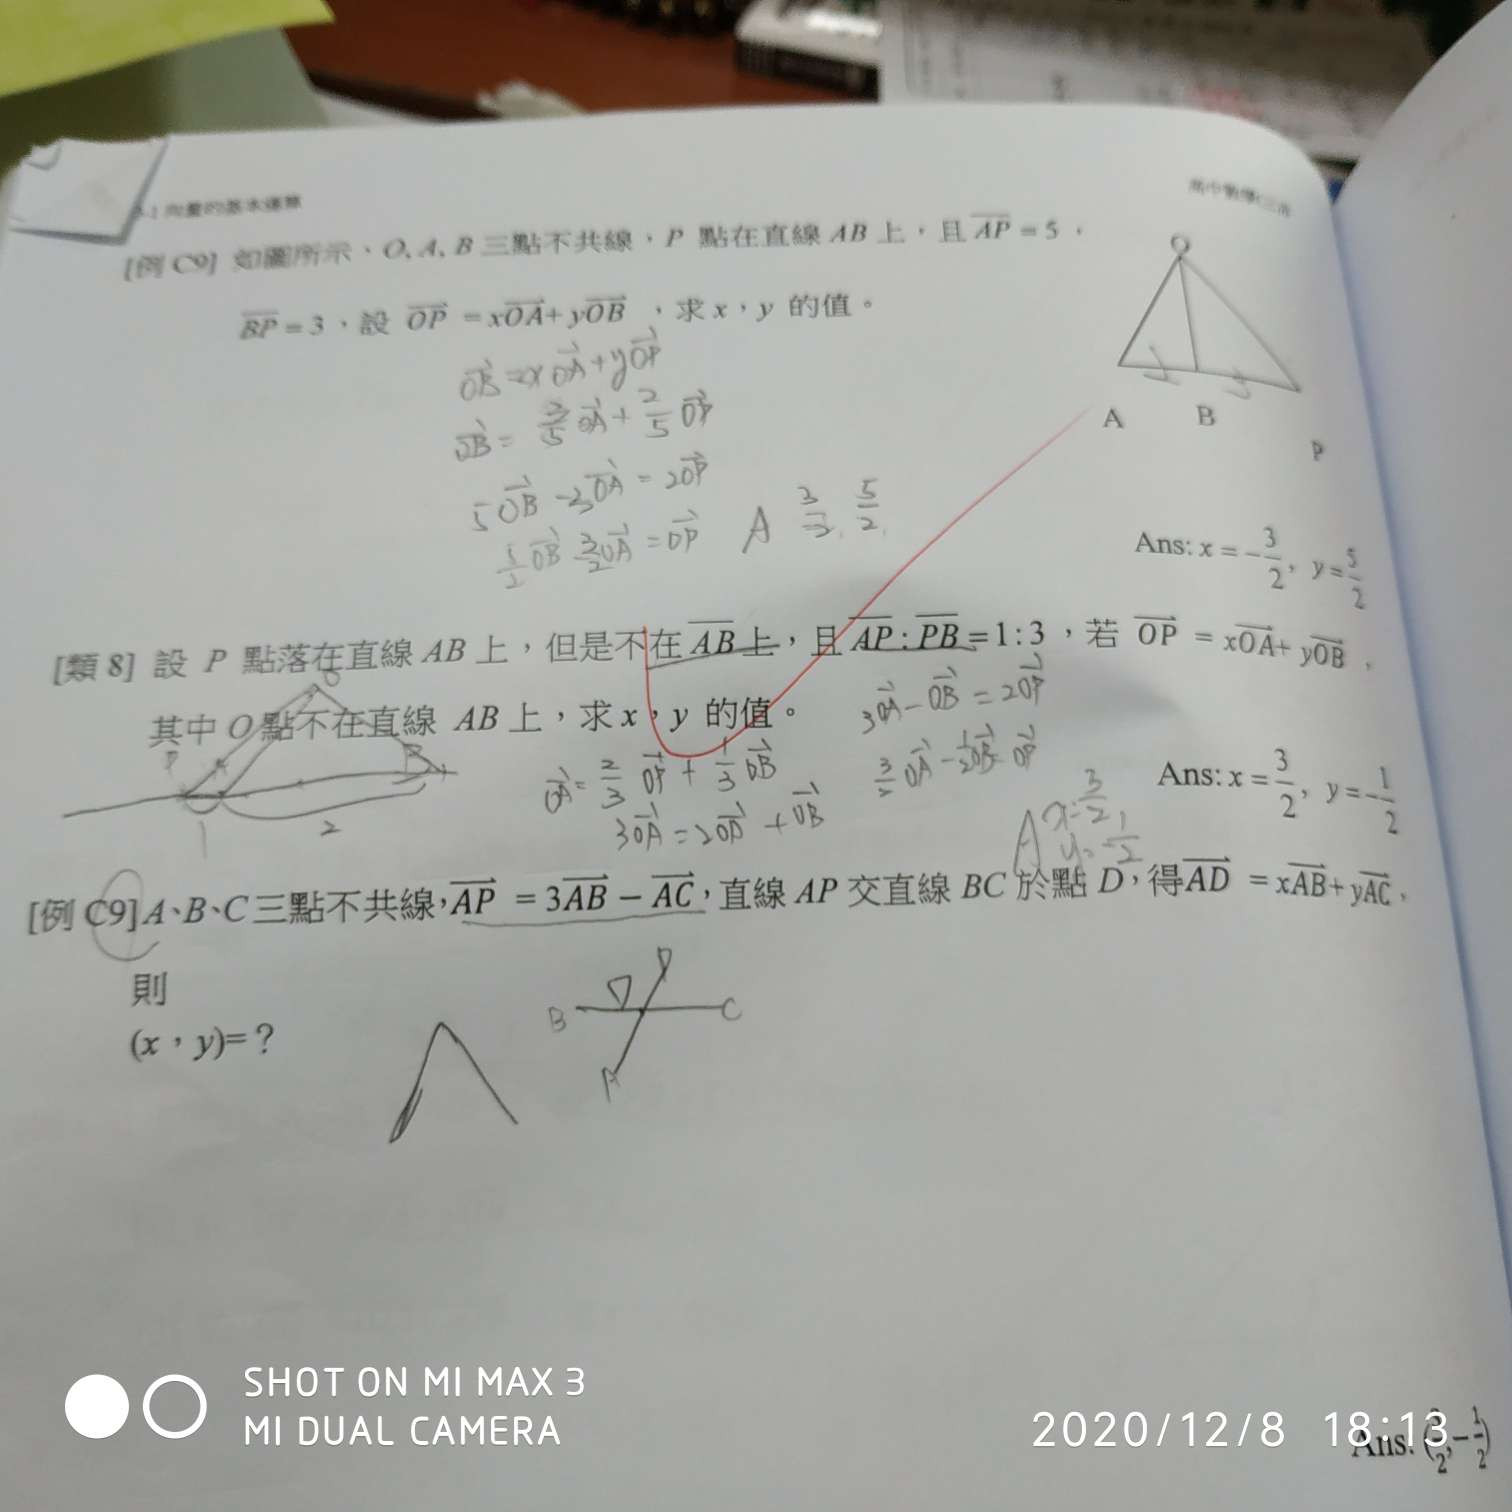 -1 向量的基本運算
[例 C9] 如圖所示、O, A, B 三點不共線，P 點在直線 AB 上，且 AP = 5，
BP = 3，設 OP = xOA + yOB ，求 x，y 的值。
O
A B
P
OB = xOA + yOP
OB = 3/5 OA + 2/5 OP
5OB - 3OA = 2OP
5/2 OB - 3/2 OA = OP
A 5/2
Ans: x = -3/2, y = 5/2
[類 8] 設 P 點落在直線 AB 上，但是不在 AB 上，且 AP : PB = 1 : 3，若 OP = xOA + yOB，
其中 O 點不在直線 AB 上，求 x，y 的值。
O
P
B
1
2
OA = 2/3 OP + 1/3 OB
3OA = 2OP + OB
3OA - OB = 2OP
3/2 OA - 1/2 OB = OP
A x = 3/2,
y = -1/2
Ans: x = 3/2, y = -1/2
[例 C9] A、B、C 三點不共線，AP = 3AB - AC，直線 AP 交直線 BC 於點 D，得 AD = xAB + yAC，
則
(x，y)=？
P
D
B C
A
SHOT ON MI MAX 3
MI DUAL CAMERA
2020/12/8 18:13
Ans: (3/2, -1/2)